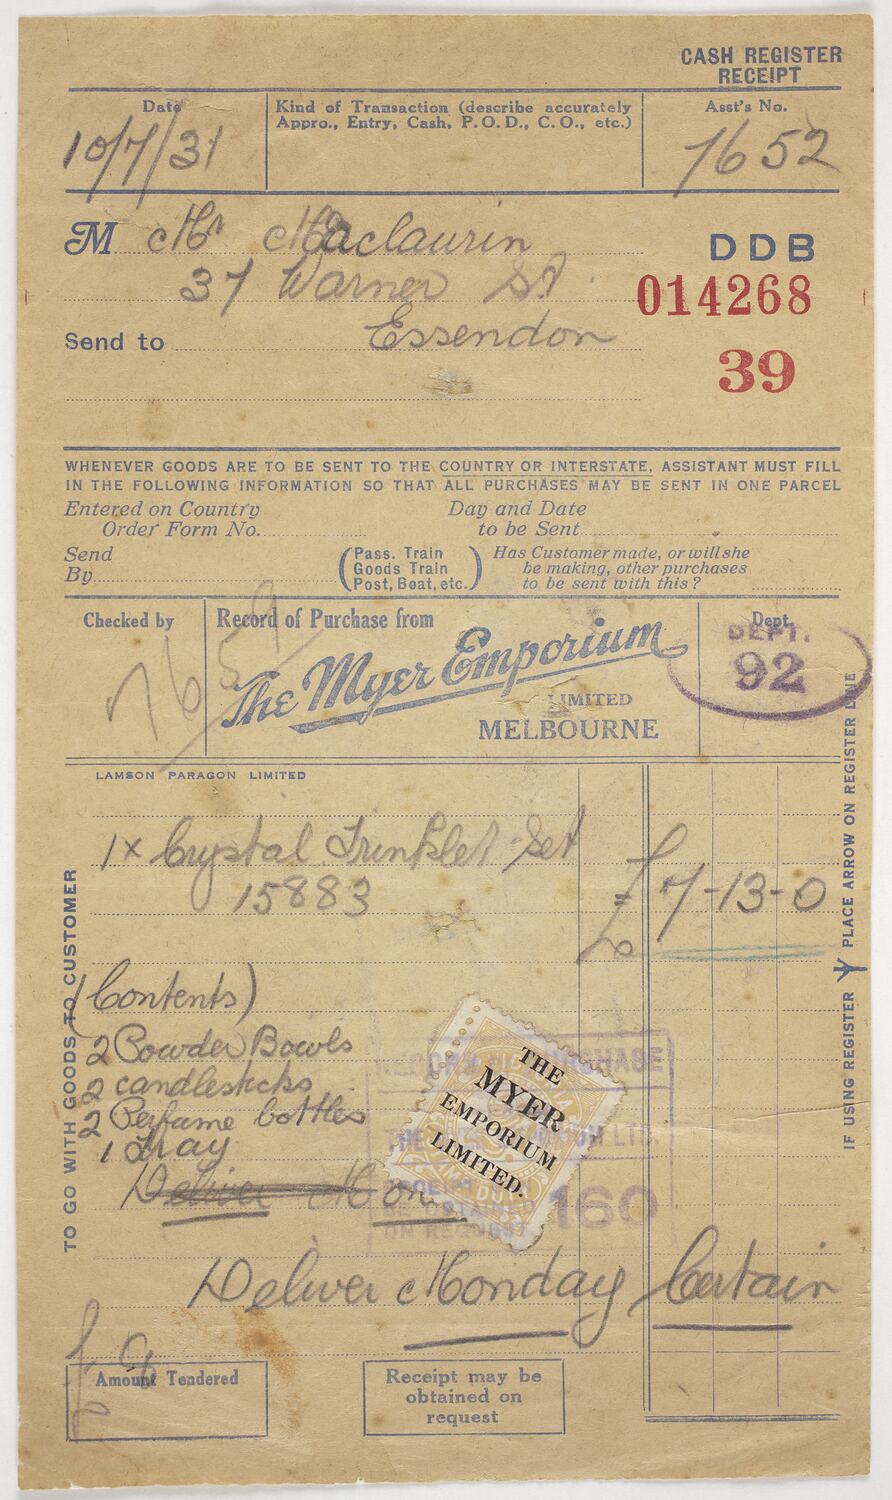 CASH REGISTER
RECEIPT
Date
10/7/31
Kind of Transaction (describe accurately
Appro., Entry, Cash, P.O.D., C.O., etc.)
Asst's No.
7652
M Mr Maclaurin
37 Warner St
DDB
014268
Send to Essendon
39
WHENEVER GOODS ARE TO BE SENT TO THE COUNTRY OR INTERSTATE, ASSISTANT MUST FILL
IN THE FOLLOWING INFORMATION SO THAT ALL PURCHASES MAY BE SENT IN ONE PARCEL
Entered on Country
Order Form No.
Day and Date
to be Sent
Send
By
(Pass. Train
Goods Train
Post, Boat, etc.)
Has Customer made, or will she
be making, other purchases
to be sent with this?
Checked by
7652
Record of Purchase from
The Myer Emporium
LIMITED
MELBOURNE
Dept.
DEPT.
92
LAMSON PARAGON LIMITED
1x Crystal Trinklet Set
15883
£7-13-0
(Contents)
2 Powder Bowls
2 candlesticks
2 Perfame bottles
1 Tray
Deliver Mon
THE
MYER
EMPORIUM
LIMITED.
RECORD OF PURCHASE
THE MYER EMPORIUM LTD.
RECEIPT
BE OBTAINED
ON REQUEST
160
Deliver Monday Certain
£8
Amount Tendered
Receipt may be
obtained on
request
TO GO WITH GOODS TO CUSTOMER
IF USING REGISTER PLACE ARROW ON REGISTER LINE